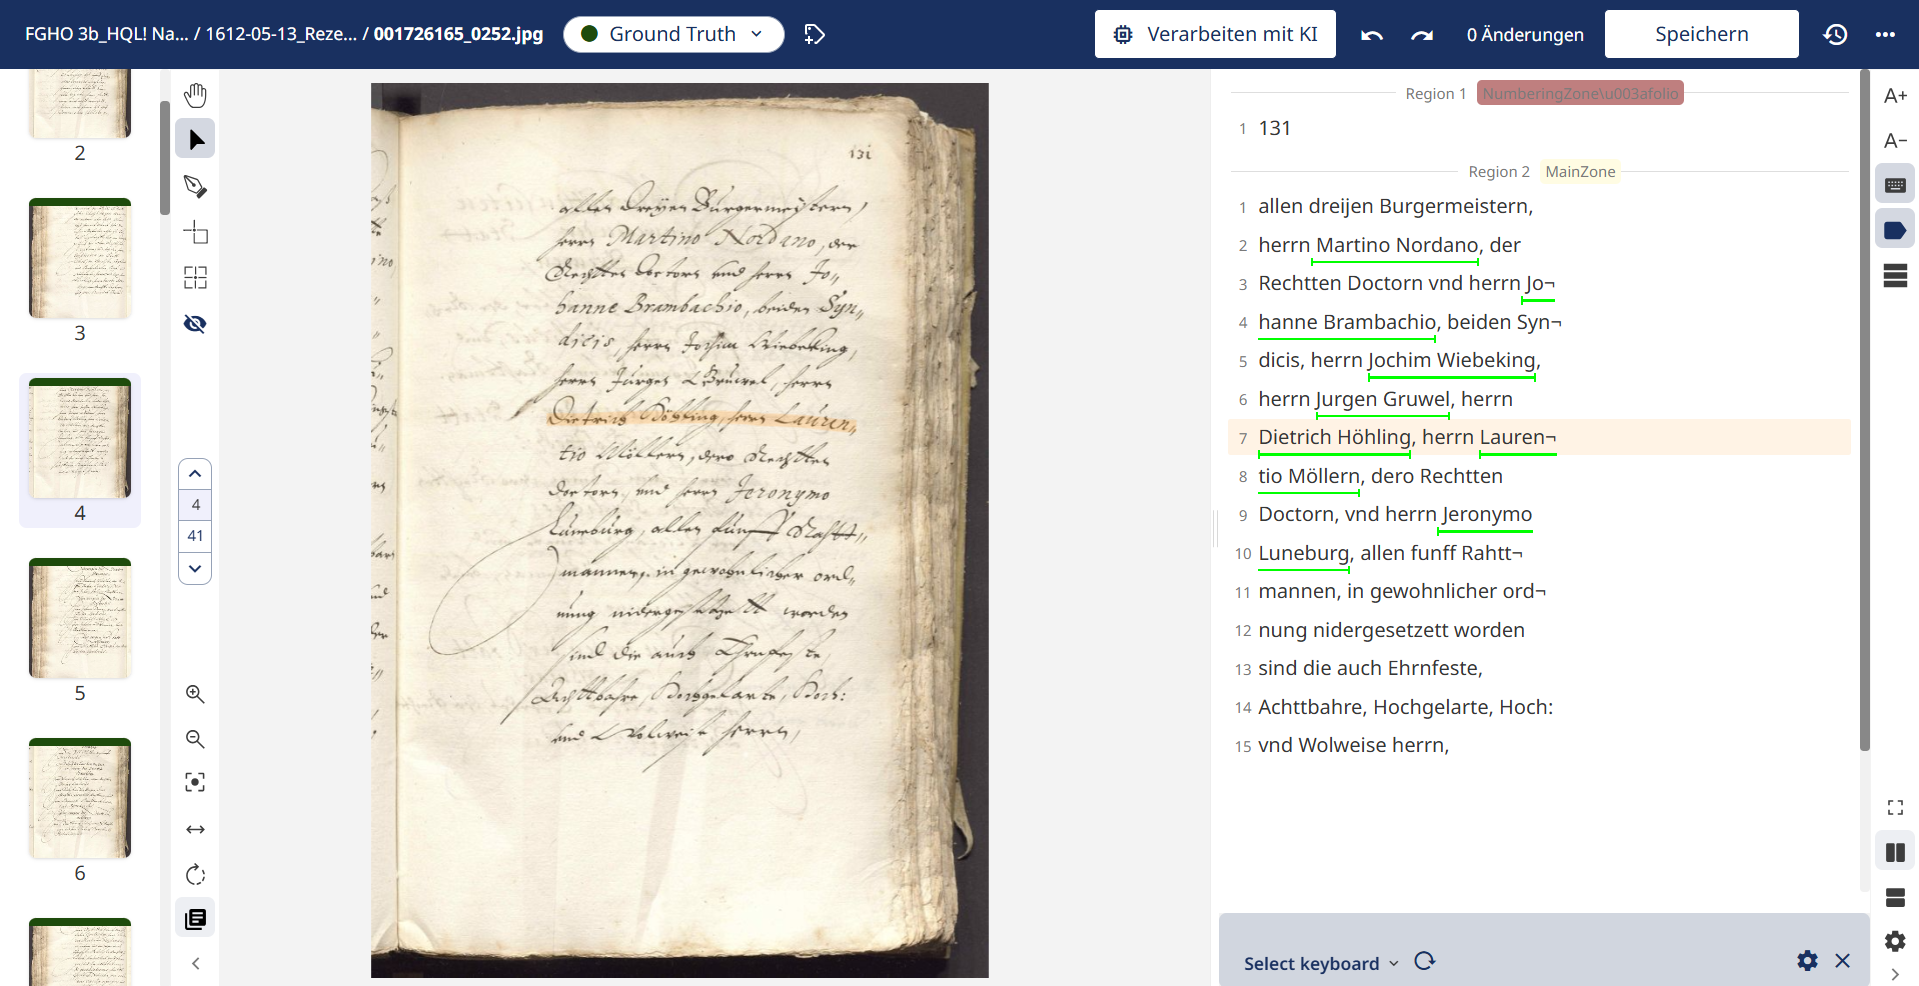 FGHO 3b_HQL! Na... / 1612-05-13_Reze... / 001726165_0252.jpg
Ground Truth
Verarbeiten mit KI
0 Änderungen
Speichern
2
3
4
5
6
4
41
131
allen dreijen Burgermeistern,
herrn Martino Nordano, der
Rechtten Doctorn vnd herrn Jo„
hanne Brambachio, beiden Syn„
dicis, herrn Jochim Wiebeking,
herrn Jurgen Gruwel, herrn
Dietrich Höhling, herrn Lauren„
tio Möllern, dero Rechtten
Doctorn, vnd herrn Jeronymo
Luneburg, allen funff Rahtt„
mannen, in gewohnlicher ord„
nung nidergesetzett worden
sind die auch Ehrnfeste,
Achttbahre, Hochgelarte, Hoch:
vnd Wolweise herrn,
Region 1 NumberingZone\u003afolio
1 131
Region 2 MainZone
1 allen dreijen Burgermeistern,
2 herrn Martino Nordano, der
3 Rechtten Doctorn vnd herrn Jo¬
4 hanne Brambachio, beiden Syn¬
5 dicis, herrn Jochim Wiebeking,
6 herrn Jurgen Gruwel, herrn
7 Dietrich Höhling, herrn Lauren¬
8 tio Möllern, dero Rechtten
9 Doctorn, vnd herrn Jeronymo
10 Luneburg, allen funff Rahtt¬
11 mannen, in gewohnlicher ord¬
12 nung nidergesetzett worden
13 sind die auch Ehrnfeste,
14 Achttbahre, Hochgelarte, Hoch:
15 vnd Wolweise herrn,
Select keyboard
A+
A-